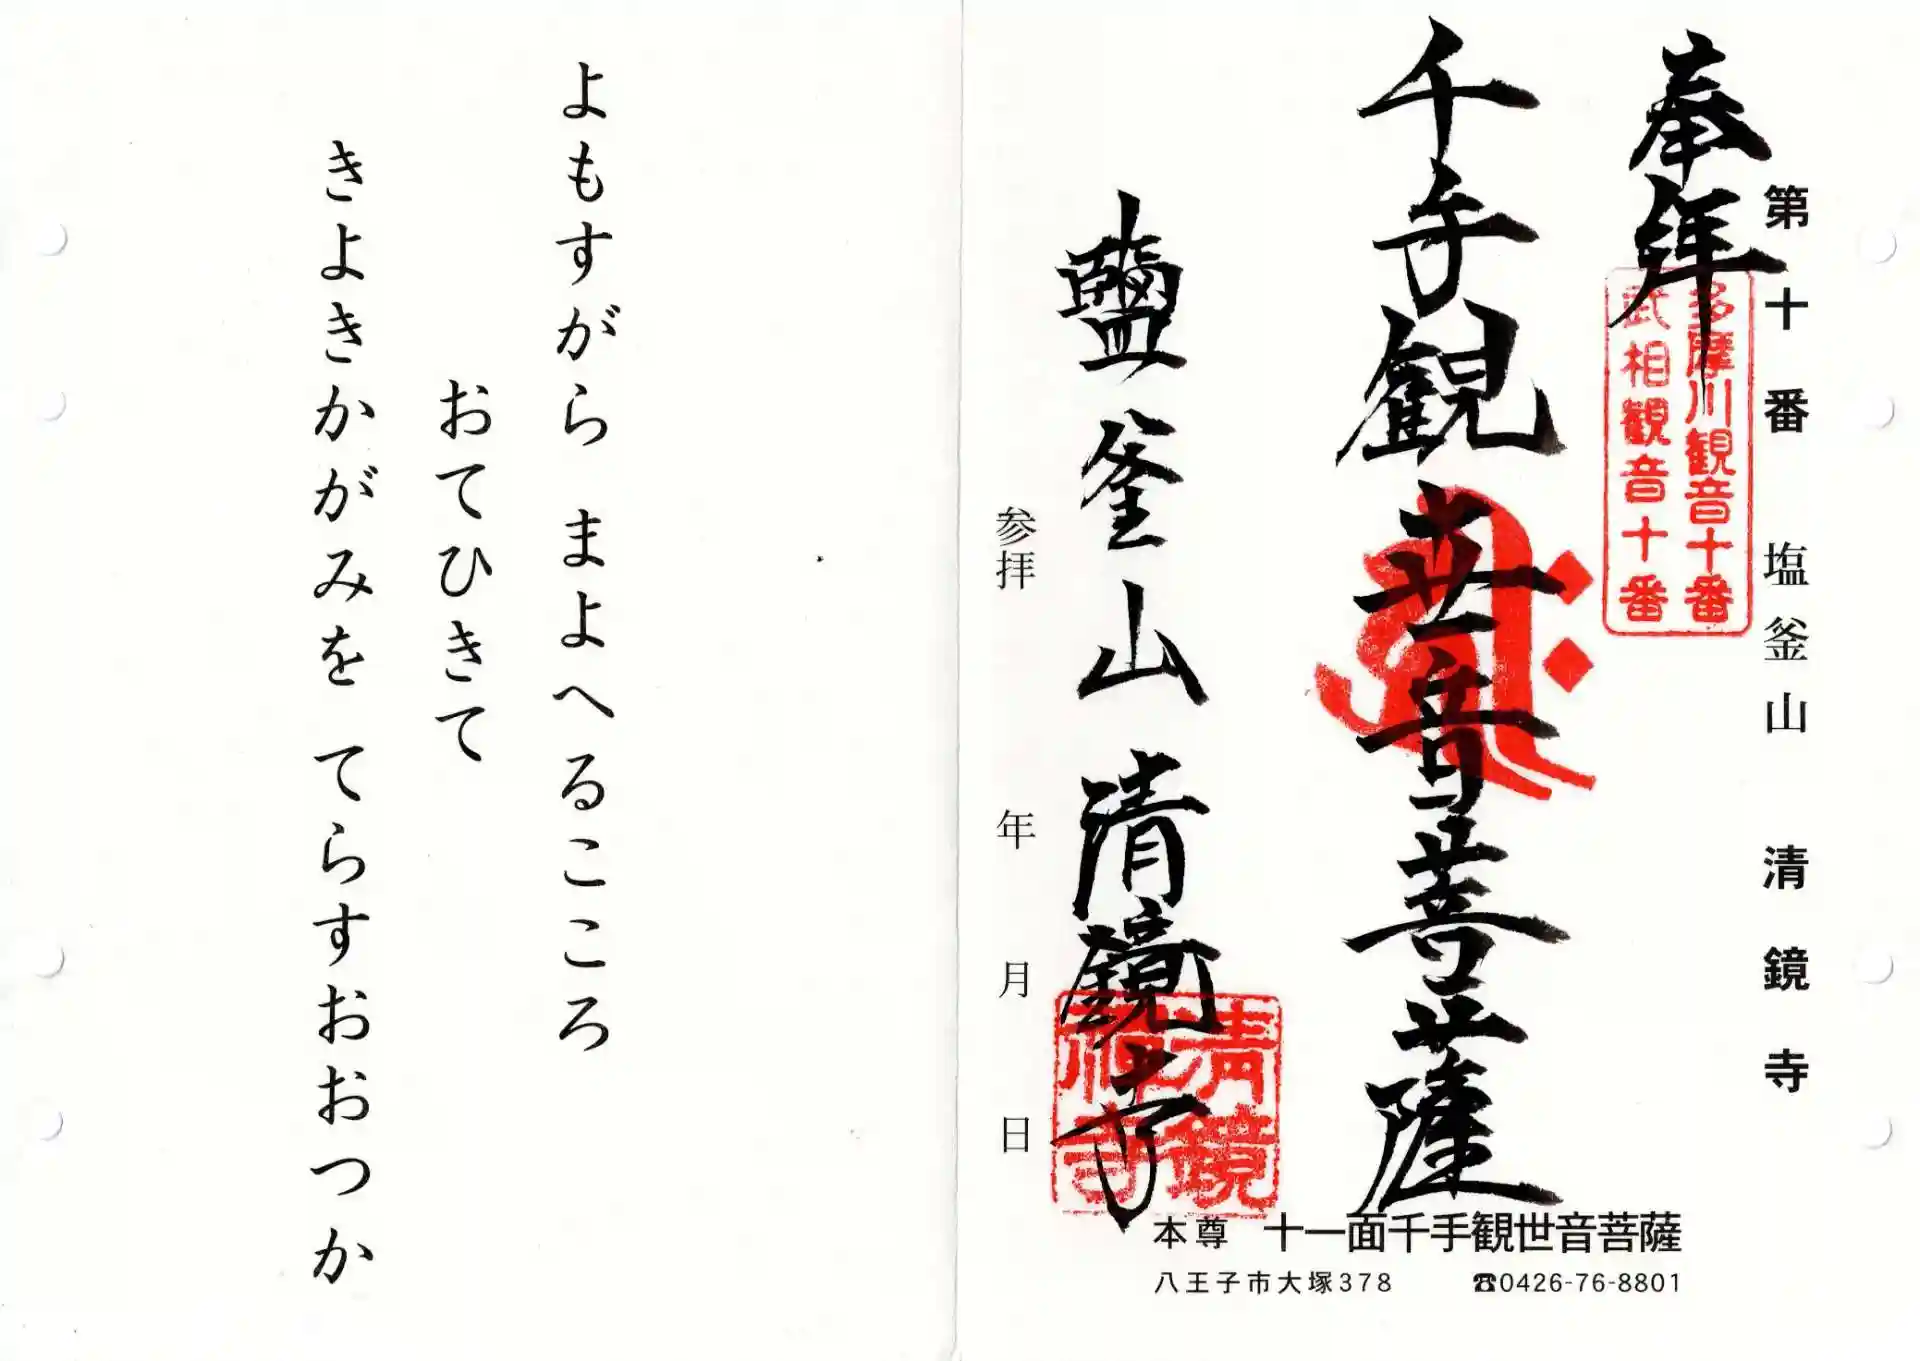 第十番 塩釜山 清鏡寺
奉拝
多摩川観音十番
武相観音十番
千手観世音菩薩
鹽釜山 清鏡寺
清鏡
参拝 年 月 日
本尊 十一面千手観世音菩薩
八王子市大塚378 ☎0426-76-8801
よもすがら まよへるこころ
おてひきて
きよきかがみを てらすおおつか